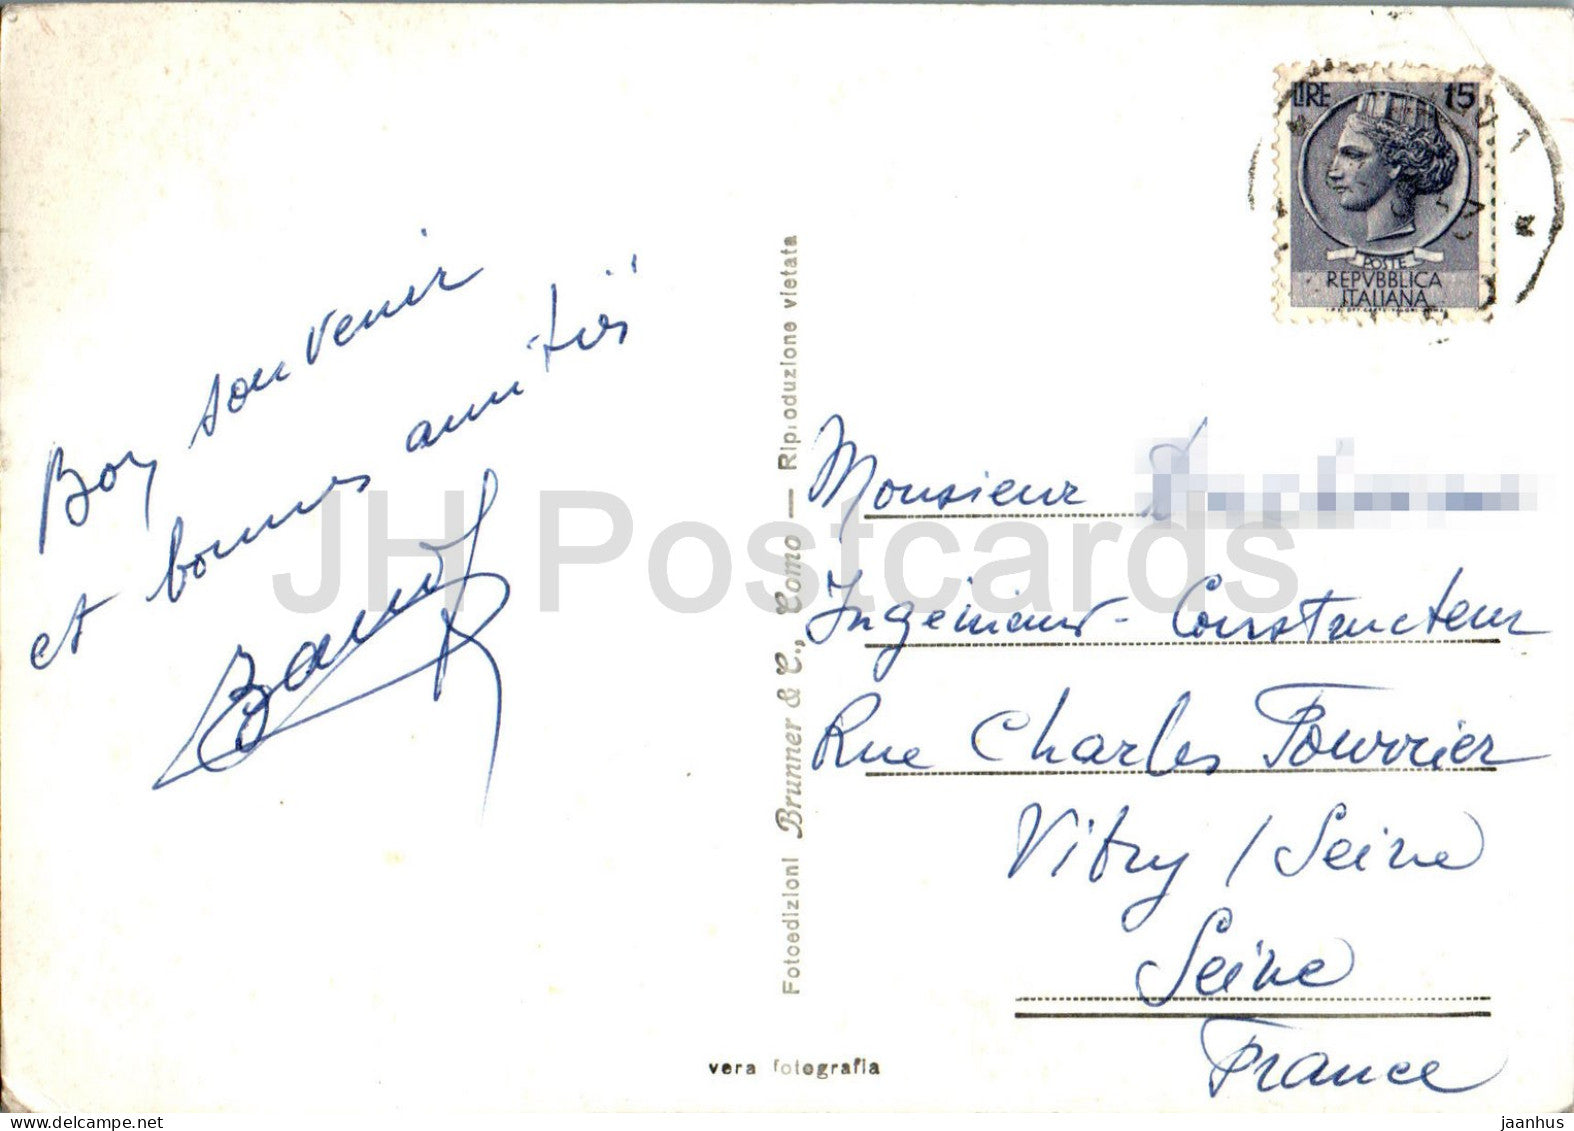 Bon souvenir
et bonnes amitiés
LIRE 15
POSTE
REPVBBLICA
ITALIANA
Monsieur
Ingénieur-Constructeur
Rue Charles Fourrier
Vitry / Seine
Seine
France
Fotoedizioni Brunner & C., Como — Riproduzione vietata
vera fotografia
JH Postcards
delcampe.net
jaanhus